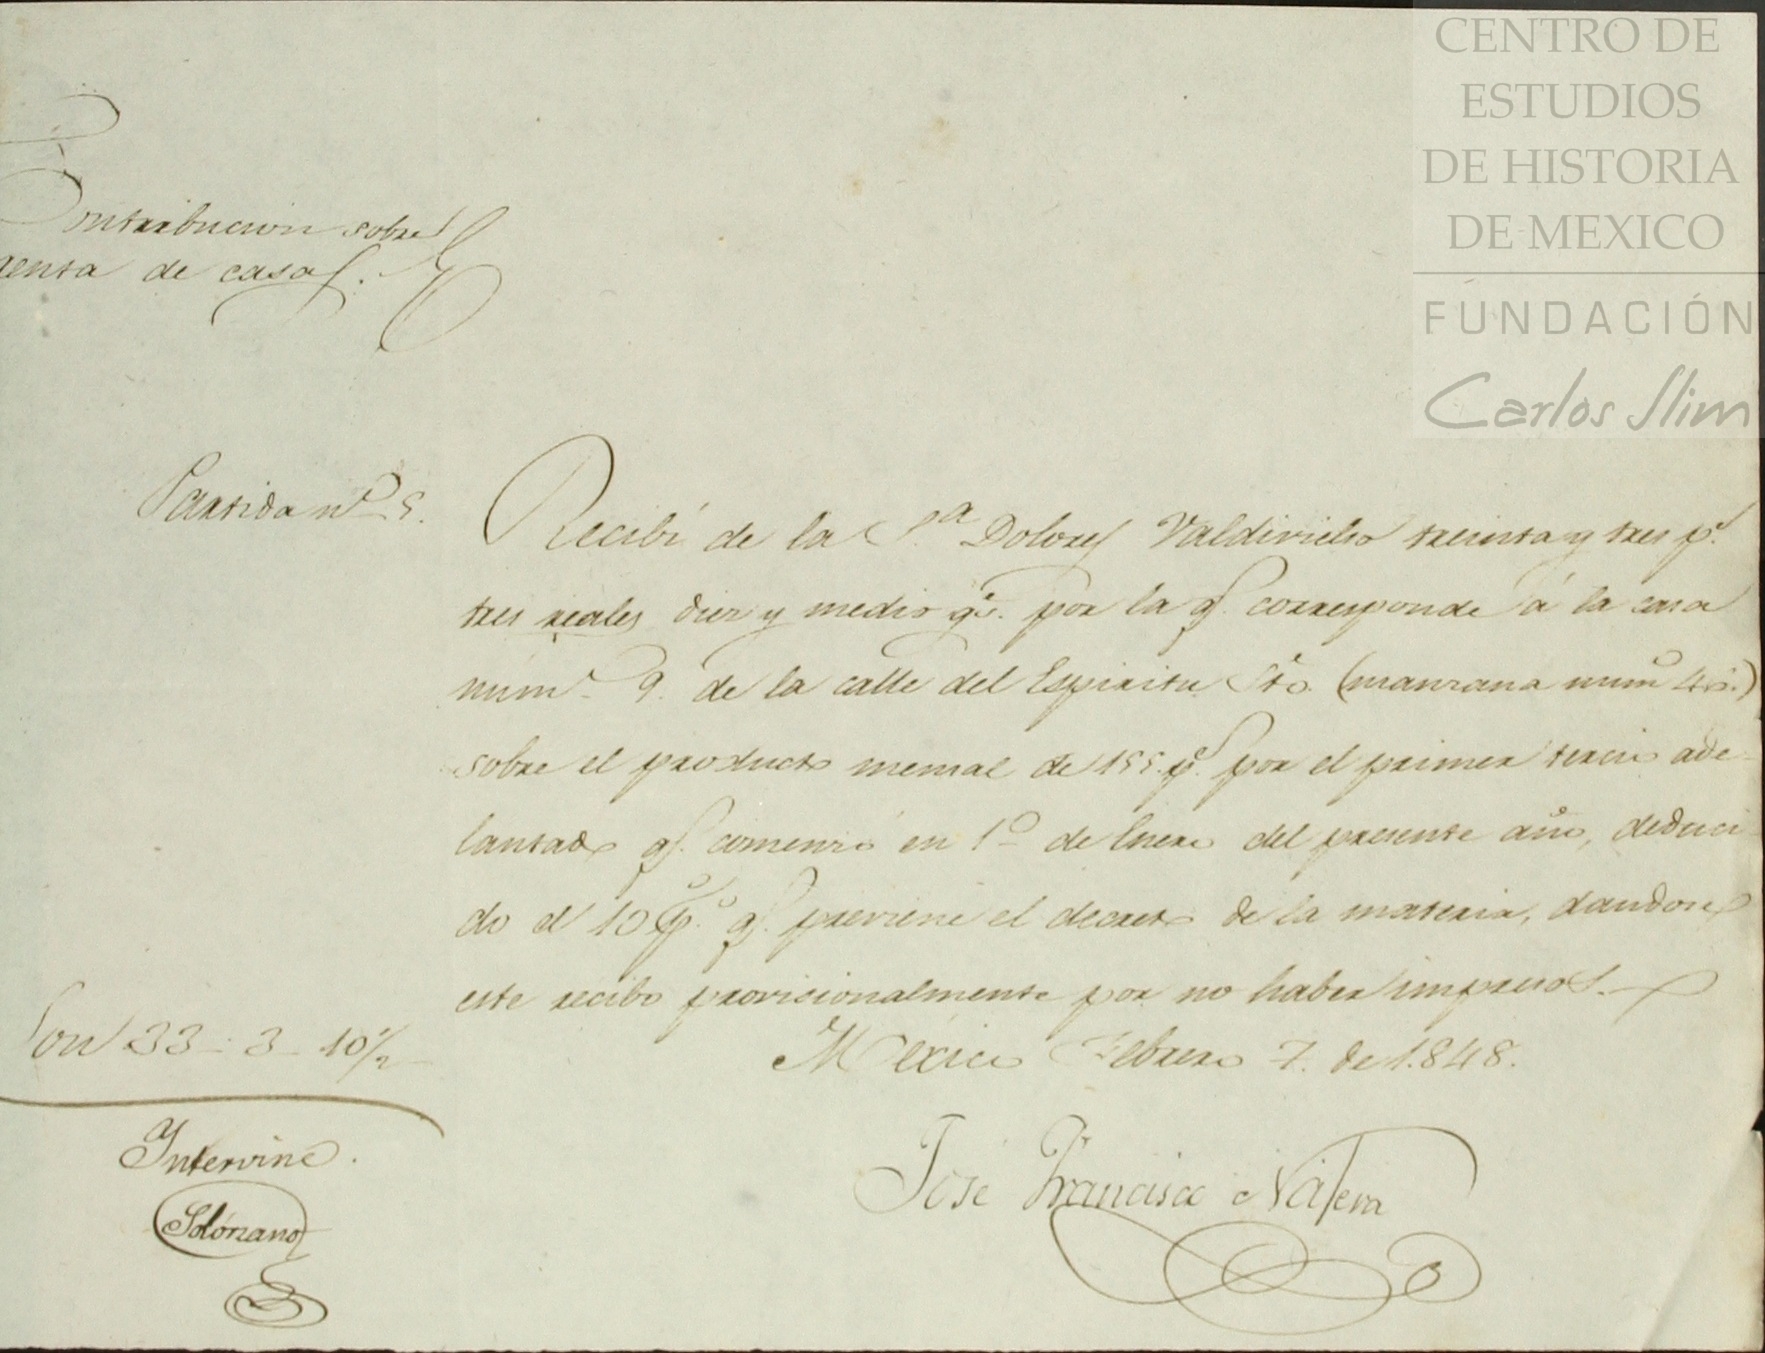 CENTRO DE
ESTUDIOS
DE HISTORIA
DE MEXICO
FUNDACIÓN
Carlos Slim
Contribucion sobre
renta de casas.
Partida nº 5.
Recibí de la S.ª Dolores Valdivielso treinta y tres p.s
tres reales diez y medio g.s por la q. corresponde á la casa
núm.º 9. de la calle del Espiritu Sto. (manzana num.º
sobre el producto mensal de 155. p.s por el primer tercio ade-
lantado q. comenzó en 1º de Enero del presente año, deduci-
do el 10 p.% q. previene el decreto de la materia, dandose
este recibo provisionalmente por no haber impresos.
México Febrero 7. de 1.848.
Son 33 - 3 - 10 1/2
Intervine.
Solórzano
José Francisco Nájera